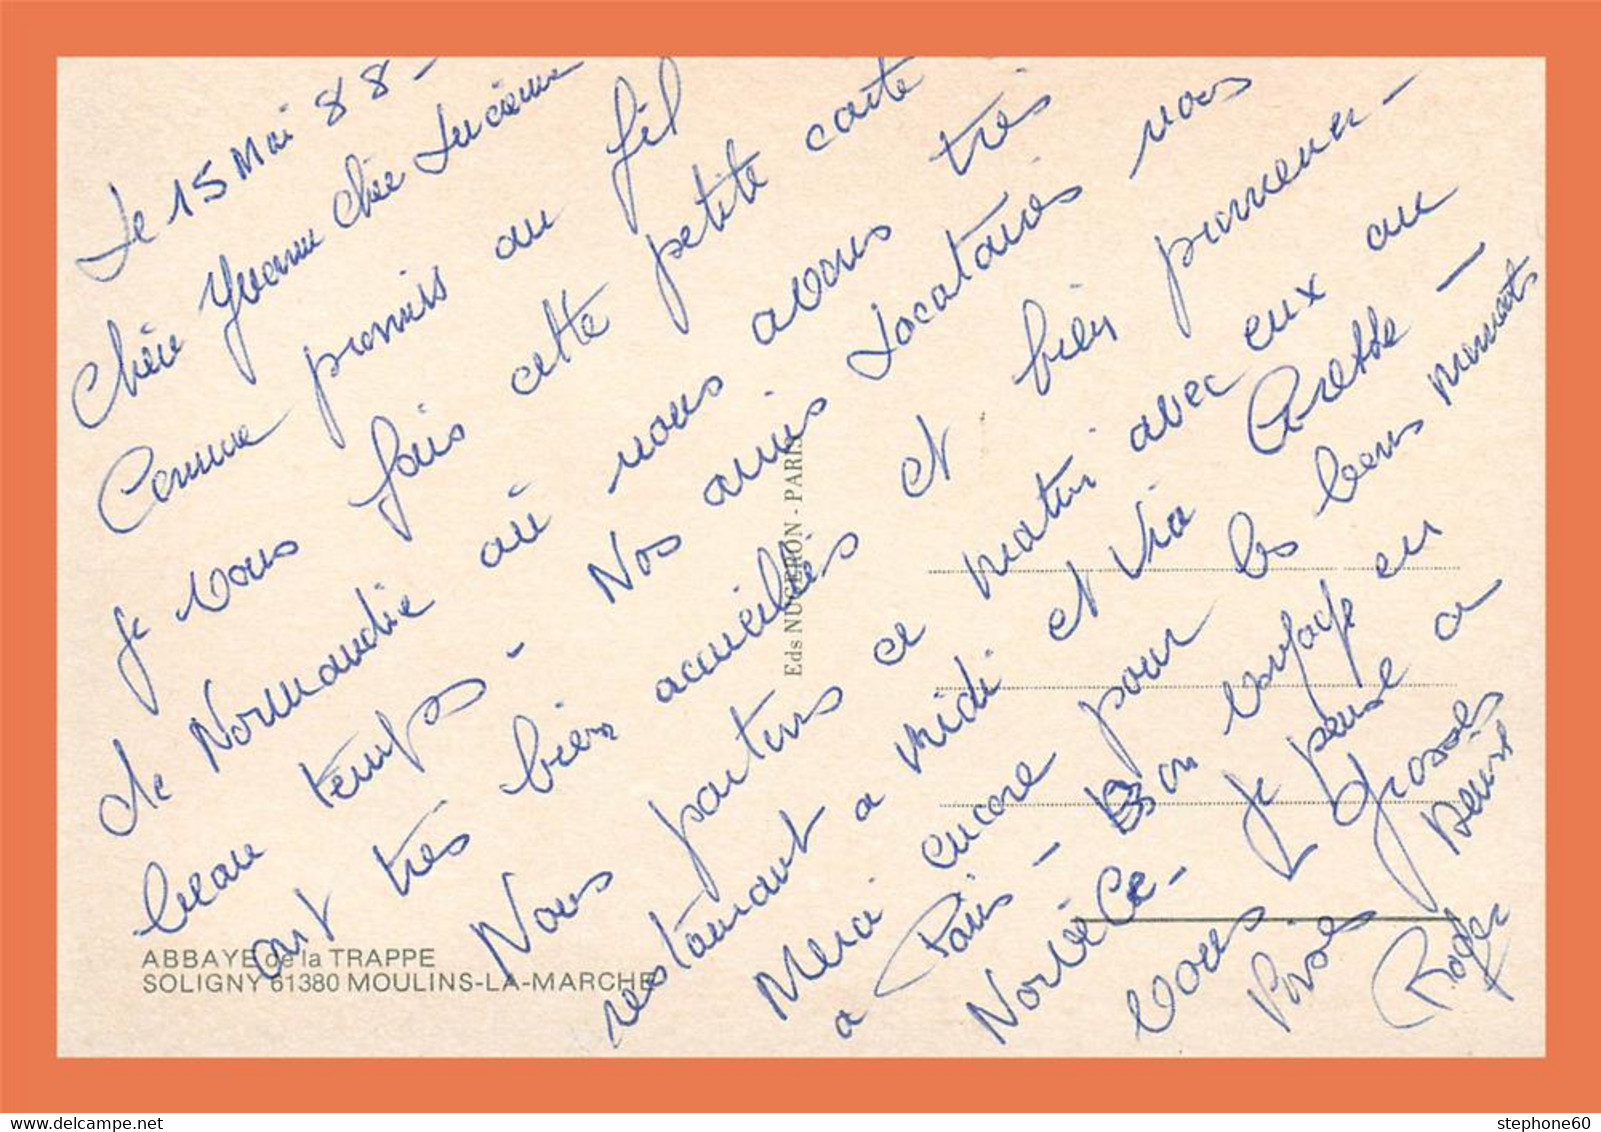 Le 15 Mai 88 -
Chère Yvonne Chère Lucienne
Comme promis au fil
je vous fais cette petite carte
de Normandie où nous avons très
beau temps - Nos amis Locataires nous
ont très bien accueillés et bien promener -
Nous partons ce matin avec eux au
restaurant a midi et Via
Merci encore pour les bons moments
a Paris - Bon voyage en
NorvéGe - Je pense a
vous Grosses
Bises Denise
Roger
Eds NUGERON - PARIS
ABBAYE de la TRAPPE
SOLIGNY 61380 MOULINS-LA-MARCHE
stephone60